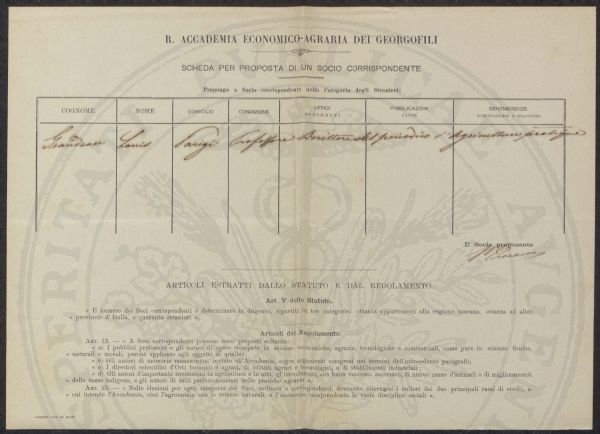 R. ACCADEMIA ECONOMICO-AGRARIA DEI GEORGOFILI
SCHEDA PER PROPOSTA DI UN SOCIO CORRISPONDENTE
Propongo a Socio corrispondente nella Categoria degli Stranieri:
COGNOME NOME DOMICILIO CONDIZIONE UFFICI PUBBLICAZIONI BENEMERENZE
SOSTENUTI FATTE SCIENTIFICHE O PRATICHE
Grandeau Louis Parigi Professore Direttore del periodico l'Agriculture pratique
Il Socio proponente
ARTICOLI ESTRATTI DALLO STATUTO E DAL REGOLAMENTO.
Art. V dello Statuto.
« Il numero dei Soci corrispondenti è determinato in dugento, ripartiti in tre categorie: ottanta appartenenti alla regione toscana, ottanta ad altre
« provincie d'Italia, e quaranta stranieri ».
Articoli del Regolamento.
ART. 12. — « A Soci corrispondenti possono esser proposti soltanto:
« a) I pubblici professori e gli autori di opere stampate in scienze economiche, agrarie, tecnologiche o commerciali, come pure in scienze fisiche,
« naturali e morali, purchè applicate agli oggetti di quelle;
« b) Gli autori di memorie manoscritte inviate all'Accademia, sopra argomenti compresi nei termini dell'antecedente paragrafo;
« c) I direttori scientifici d'Orti botanici e agrari, di istituti agrari e tecnologici, o di stabilimenti industriali;
« d) Gli autori d'importanti invenzioni in agricoltura o in arti, gl'introduttori, con buon successo accertato, di nuove razze d'animali e di miglioramenti
« delle razze indigene, e gli autori di utili perfezionamenti nelle pratiche agrarie ».
ART. 15. — « Nelle elezioni per ogni categoria dei Soci, ordinari o corrispondenti, dovranno alternarsi i cultori dei due principali rami di studii, a
« cui intende l'Accademia, cioè l'agronomia con le scienze naturali e l'economia comprendente le varie discipline sociali ».